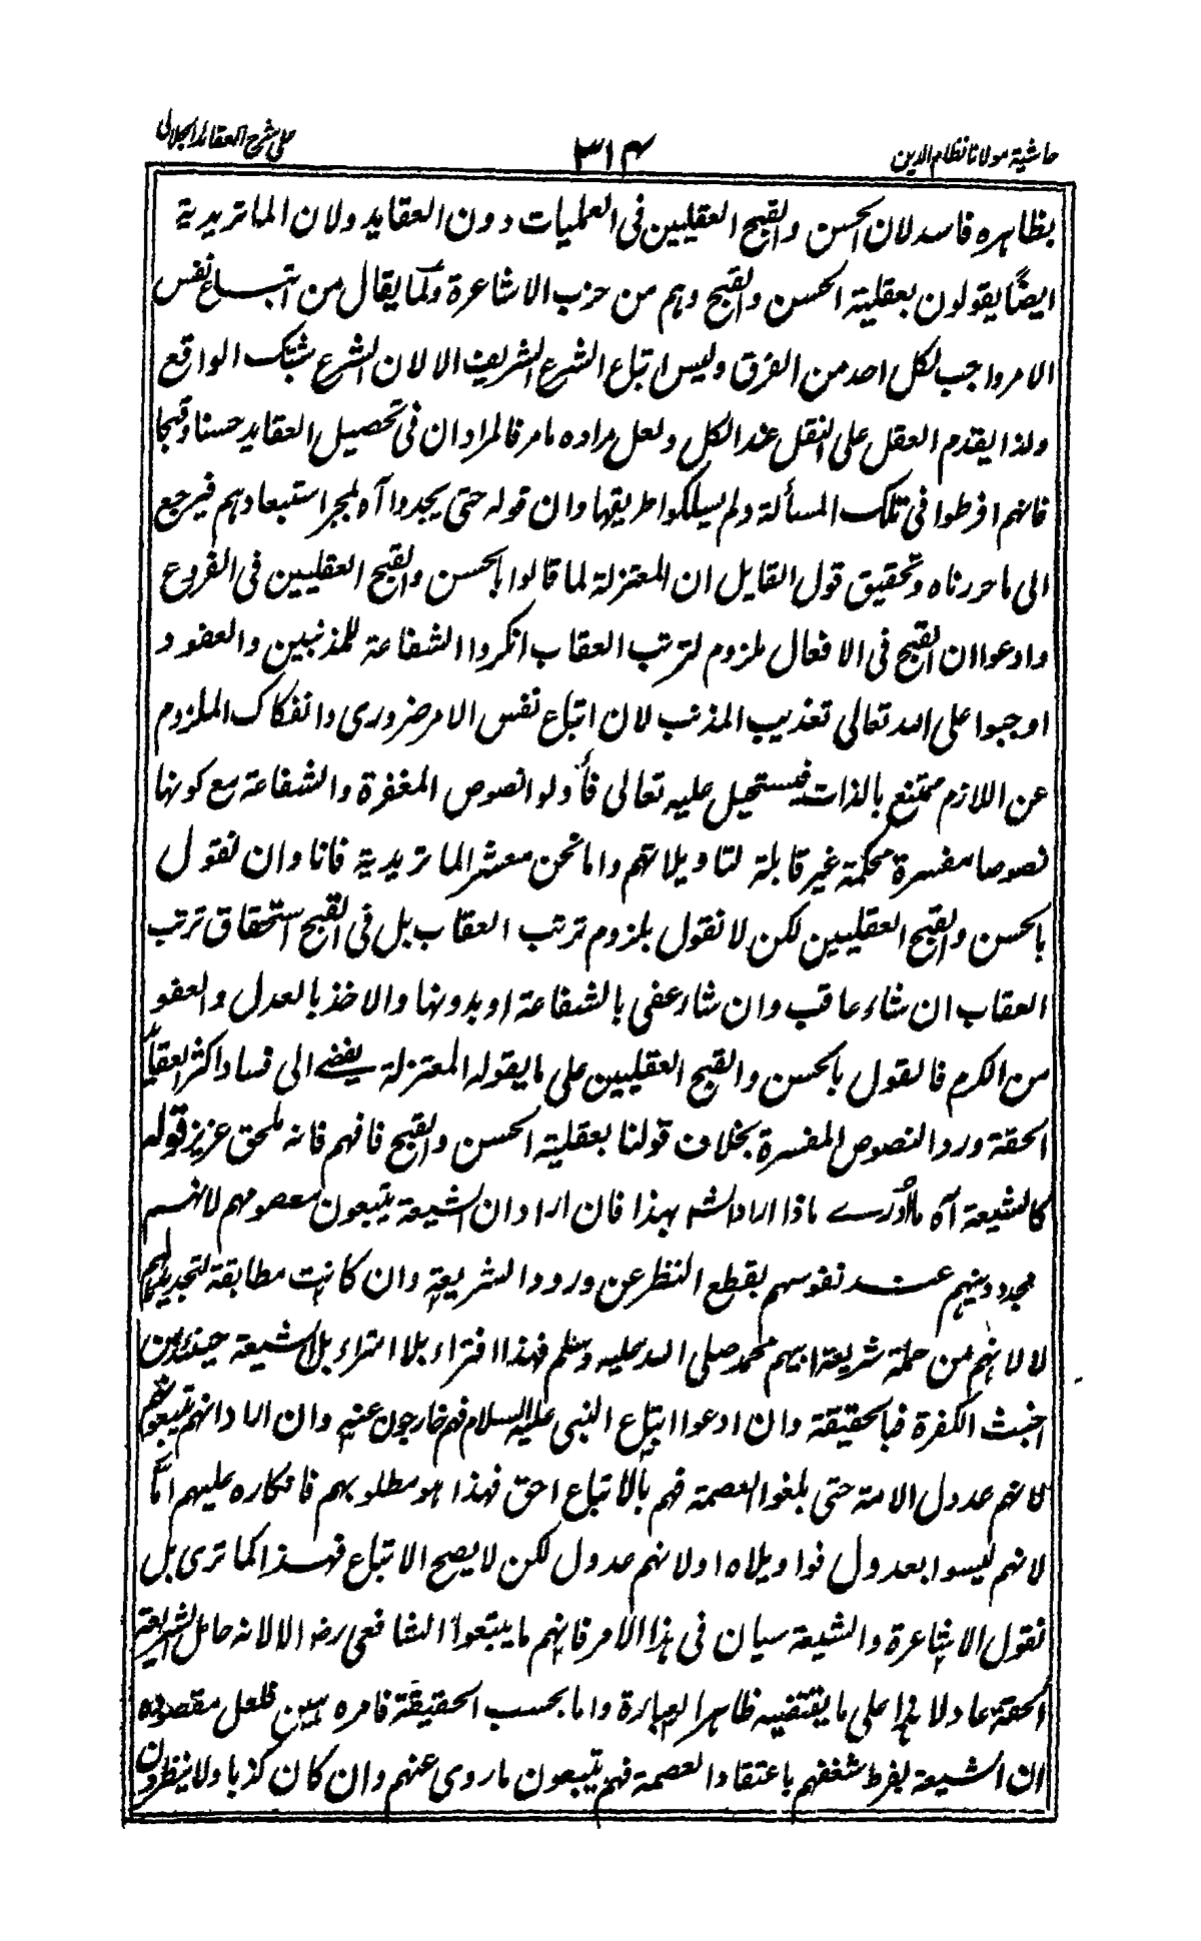 حاشية مولانا نظام الدين
٣١٤
على شرح العقائد الجلالي
بظاهره فاسد لان الحسن والقبح العقليين فى العمليات دون العقايد ولان الماتريدية
ايضًا يقولون بعقلية الحسن والقبح وهم من حزب الاشاعرة وكما يقال من اتباع نفس
الامر واجب لكل احد من الفرق وليس اتباع الشرع الشريف الا لان الشرع الواقع
ولذا يقدم العقل على النقل عند الكل ولعل مراده ما مر فالمراد ان فى تحصيل العقايد حسنا وقبحا
فانهم افرطوا فى تلك المسألة ولم يسلكوا طريقها وان قوله حتى يجدوا آه لمجر استبعادهم فيرجع
الى ما حررناه وتحقيق قول القايل ان المعتزلة لما قالوا بالحسن والقبح العقليين فى الفروع
وادعوا ان القبح فى الافعال ملزوم لترتب العقاب انكروا الشفاعة للمذنبين والعفو و
اوجبوا على الله تعالى تعذيب المذنب لان اتباع نفس الامر ضرورى وانفكاك الملزوم
عن اللازم ممتنع بالذات فيستحيل عليه تعالى فأولوا نصوص المغفرة والشفاعة مع كونها
نصوصا مفسرة محكمة غير قابلة لتاويلاتهم واما نحن معشر الماتريدية فانا وان نقول
بالحسن والقبح العقليين لكن لا نقول بلزوم ترتب العقاب بل فى القبح استحقاق ترتب
العقاب ان شاء عاقب وان شاء عفى بالشفاعة او بدونها والاخذ بالعدل والعفو
من الكرم فالقول بالحسن والقبح العقليين على ما يقوله المعتزلة يفضے الى فساد اكثر العقايد
الحقة ورد النصوص المفسرة بخلاف قولنا بعقلية الحسن والقبح فافهم فانه ملحق عزيز قوله
كالشيعة آه ما أدرے ماذا اراد الشـ بهذا فان اراد ان الشيعة يتبعون معصومهم لانهم
مجدد دينهم عند نفوسهم بقطع النظر عن ورود الشريعة وان كانت مطابقة لتجديداتهم
لا لانهم من حملة شريعة ابيهم محمد صلى الله عليه وسلم فهذا افتراء بلا امتراء بل الشيعة حينئذ من
اخبث الكفرة فبالحقيقة وان ادعوا اتباع النبى عليه السلام فهم خارجون عنه وان اراد انهم تبعوهم
لانهم عدول الامة حتى بلغوا العصمة فهم بالاتباع احق فهذا هو مطلوبهم فانكاره عليهم اما
لانهم ليسوا بعدول فوا ويلاه او لانهم عدول لكن لا يصح الاتباع فهذا كما ترى بل
نقول الاشاعرة والشيعة سيان فى هذا الامر فانهم ما يتبعوا الشافعى رضـ الا لانه حامل الشريعة
الحقة عادلا هذا على ما يقتضيه ظاهر العبارة واما بحسب الحقيقة فامره هين فلعل مقصوده
ان الشيعة لفرط شغفهم باعتقاد العصمة فهم يتبعون ما روى عنهم وان كان كذبا ولا ينظرون